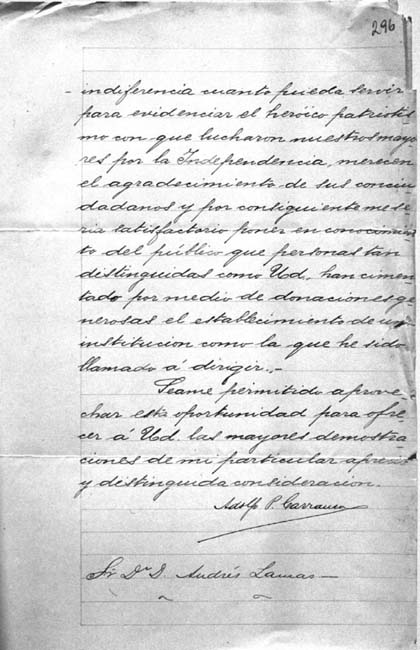 296
indiferencia cuanto pueda servir
para evidenciar el heróico patriotis
mo con que lucharon nuestros mayo
res por la Independencia, merecen
el agradecimiento de sus conciu
dadanos y por consiguiente me se
ria satisfactorio poner en conocimien
to del público que personas tan
distinguidas como Ud. han cimen
tado por medio de donaciones ge
nerosas el establecimiento de una
institucion como la que he sido
llamado á dirigir.-
Seame permitido aprove
char esta oportunidad para ofre
cer á Ud. las mayores demostra
ciones de mi particular aprecio
y distinguida consideracion.
Adolfo P. Carranza
Sr. Dr. D. Andrés Lamas-